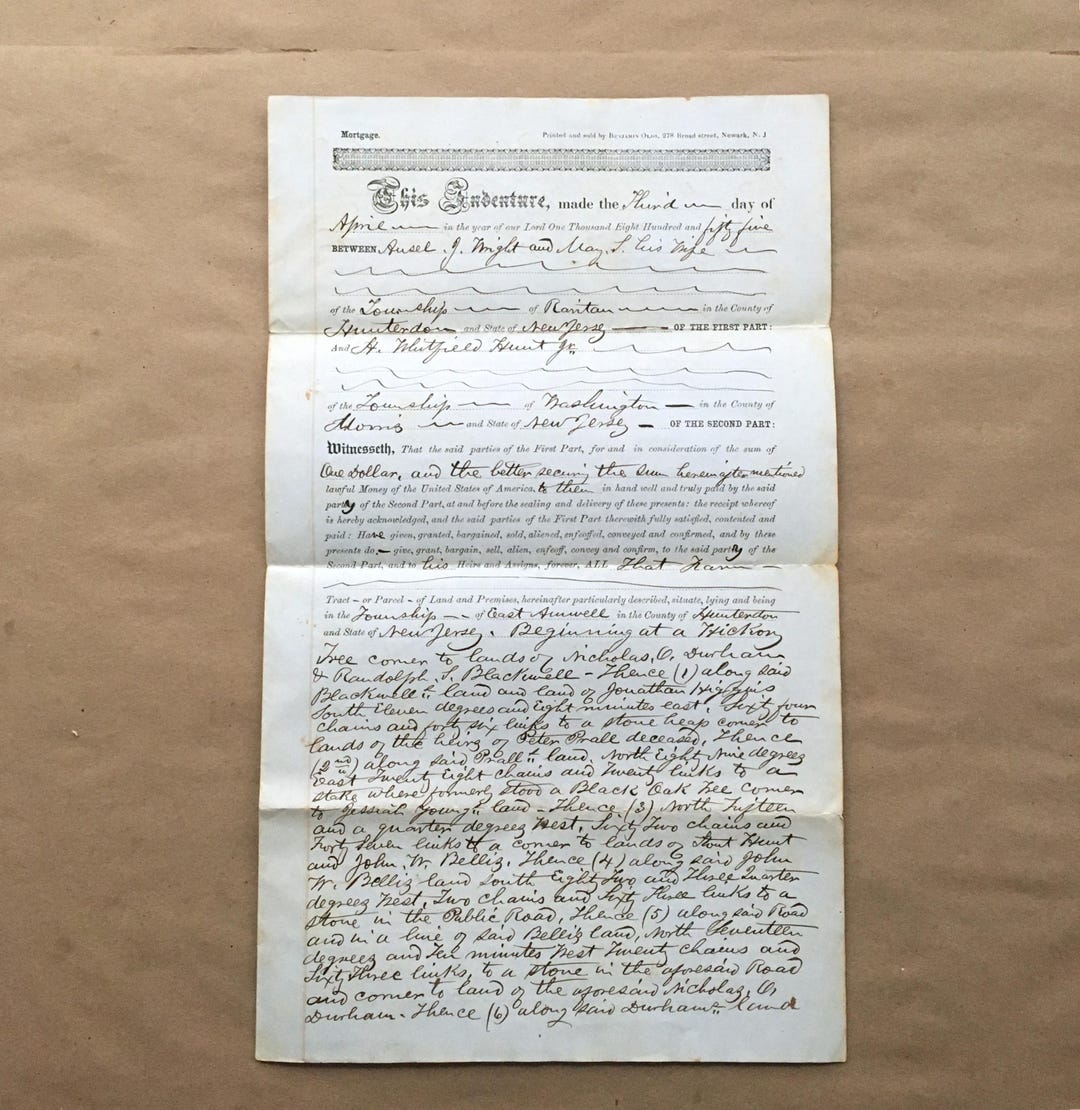 Mortgage. Printed and sold by Benjamin Olds, 278 Broad street, Newark, N. J
This Indenture, made the Third day of
April in the year of our Lord One Thousand Eight Hundred and fifty five
BETWEEN Ansel J. Wright and May S. his Wife
of the Township of Raritan in the County of
Hunterdon and State of New Jersey OF THE FIRST PART:
And H. Whitfield Hunt Jr.
of the Township of Washington in the County of
Morris and State of New Jersey OF THE SECOND PART:
Witnesseth, That the said parties of the First Part, for and in consideration of the sum of
One Dollar, and the better securing the sum hereinafter mentioned
lawful Money of the United States of America, to them in hand well and truly paid by the said
party of the Second Part, at and before the sealing and delivery of these presents: the receipt whereof
is hereby acknowledged, and the said parties of the First Part therewith fully satisfied, contented and
paid: Have given, granted, bargained, sold, aliened, enfeoffed, conveyed and confirmed, and by these
presents do – give, grant, bargain, sell, alien, enfeoff, convey and confirm, to the said party of the
Second Part, and to his Heirs and Assigns, forever, ALL That Farm
Tract – or Parcel – of Land and Premises, hereinafter particularly described, situate, lying and being
in the Township – of East Amwell in the County of Hunterdon
and State of New Jersey. Beginning at a Hickory
Tree corner to lands of Nicholas. O. Durham
& Randolph. S. Blackwell – Thence (1) along said
Blackwells land and land of Jonathan Higgins
South Eleven degrees and Eight minutes east, Sixty four
chains and forty six links to a stone heap corner to
lands of the heirs of Peter Prall deceased, Thence
(2nd) along said Pralls land, North Eighty Nine degrees
East Twenty Eight chains and Twenty links to a
stake where formerly stood a Black Oak Tree corner
to Jessiah Youngs land – Thence (3) North Fifteen
and a quarter degrees West, Sixty Two chains and
Forty Seven links to a corner to lands of Stout Hunt
and John. W. Bellis. Thence (4) along said John
W. Bellis land South Eighty Two and Three quarter
degrees West, Two chains and Sixty Three links to a
stone in the Public Road, Thence (5) along said Road
and in a line of said Bellis land, North Seventeen
degrees and Ten minutes West Twenty chains and
Sixty Three links, to a stone in the aforesaid Road
and corner to land of the aforesaid Nicholas. O.
Durham – Thence (6) along said Durhams land